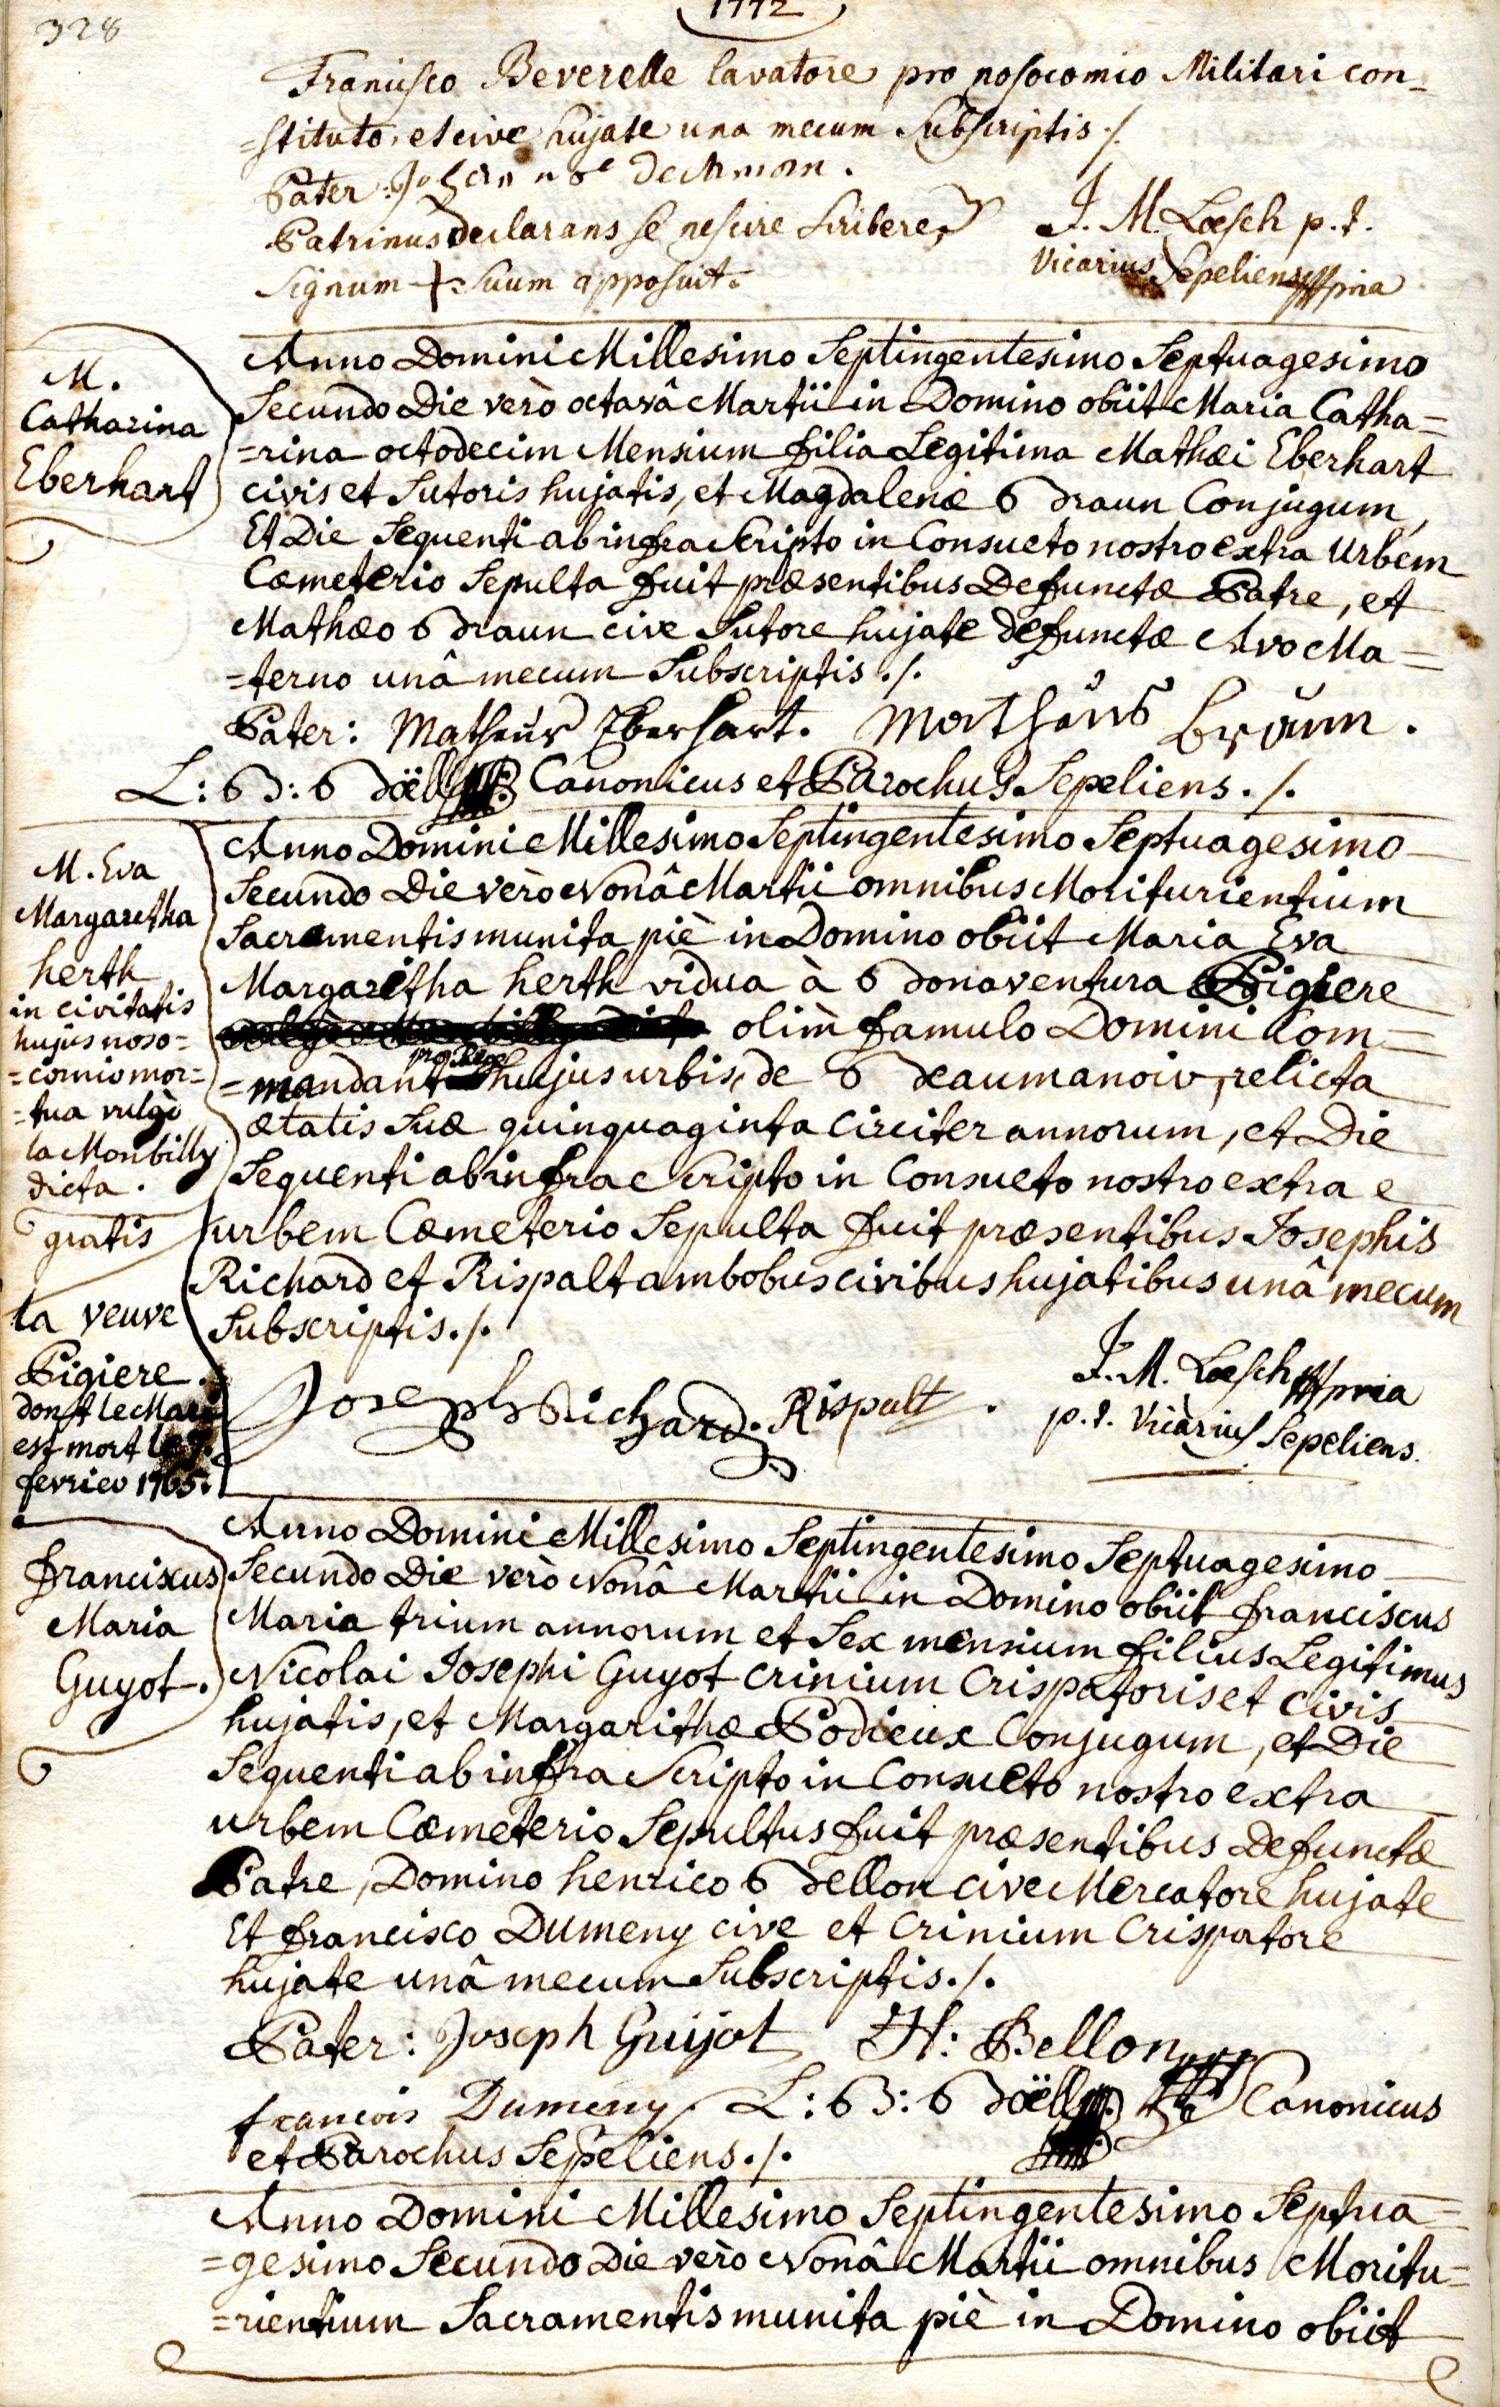 328
1772
Francisco Beverelle lavatore pro nosocomio Militari con-
=stituto, et cive hujate una mecum Subscriptis ./.
Pater:
Patrinus declarans se nescire scribere,
Signum + suum apposuit.
J. M. Loesch p. t.
Vicarius Sepeliens mpria
M.
Catharina
Eberhart
Anno Domini Millesimo Septingentesimo Septuagesimo
Secundo Die verò octavâ Martii in Domino obiit Maria Catha=
=rina octodecim Mensium filia Legitima Mathæi Eberhart
civis et Sutoris hujatis, et Magdalenæ Braun Conjugum,
Et Die Sequenti ab infra Scripto in Consueto nostro extra Urbem
Cœmeterio Sepulta fuit præsentibus Defunctæ Patre, et
Mathæo Braun cive Sutore hujate defunctæ Avo Ma=
=terno unâ mecum Subscriptis ./.
Pater: Matheus Eberhart. Mathäus braun.
L: B: Boëll Canonicus et Parochus Sepeliens ./.
M. Eva
Margaretha
herth
in civitatis
hujus noso=
=comio mor=
=tua vulgò
la Monbilly
dicta.
gratis
la veuve
Pigiere
dont le Mari
est mort le 7.
fevrier 1765.
Anno Domini Millesimo Septingentesimo Septuagesimo
Secundo Die verò Nonâ Martii omnibus Moriturientium
Sacramentis munita piè in Domino obiit Maria Eva
Margaretha herth vidua à Bonaventura Pigiere
olim famulo Domini Com=
=mandant pro Rege hujus urbis, de Beaumanoir, relicta
ætatis Suæ quinquaginta circiter annorum, et Die
Sequenti ab infra Scripto in Consueto nostro extra
urbem Cœmeterio Sepulta fuit præsentibus Josephis
Richard et Rispalt ambobus civibus hujatibus unâ mecum
Subscriptis ./.
Joseph Richard. Rispalt.
J. M. Loesch mpria
p. t. Vicarius Sepeliens.
franciscus
Maria
Guyot.
Anno Domini Millesimo Septingentesimo Septuagesimo
Secundo Die verò Nonâ Martii in Domino obiit franciscus
Maria trium annorum et Sex mensium filius Legitimus
Nicolai Josephi Guyot crinium Crispatoris et civis
hujatis, et Margarithæ Podieux Conjugum, et Die
Sequenti ab infra Scripto in Consueto nostro extra
urbem Cœmeterio Sepultus fuit præsentibus Defunctæ
Patre, Domino henrico Bellon cive Mercatore hujate
Et francisco Dumeny cive et Crinium Crispatore
hujate unâ mecum Subscriptis ./.
Pater: Joseph Guijot H: Bellon
francois Dumeny L: B: Boëll Canonicus
et Parochus Sepeliens ./.
Anno Domini Millesimo Septingentesimo Septua=
=gesimo Secundo Die verò Nonâ Martii omnibus Moritu=
=rientium Sacramentis munita piè in Domino obiit